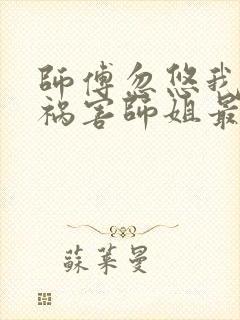 師傅忽悠我
祸害師姐最
蘇萊曼